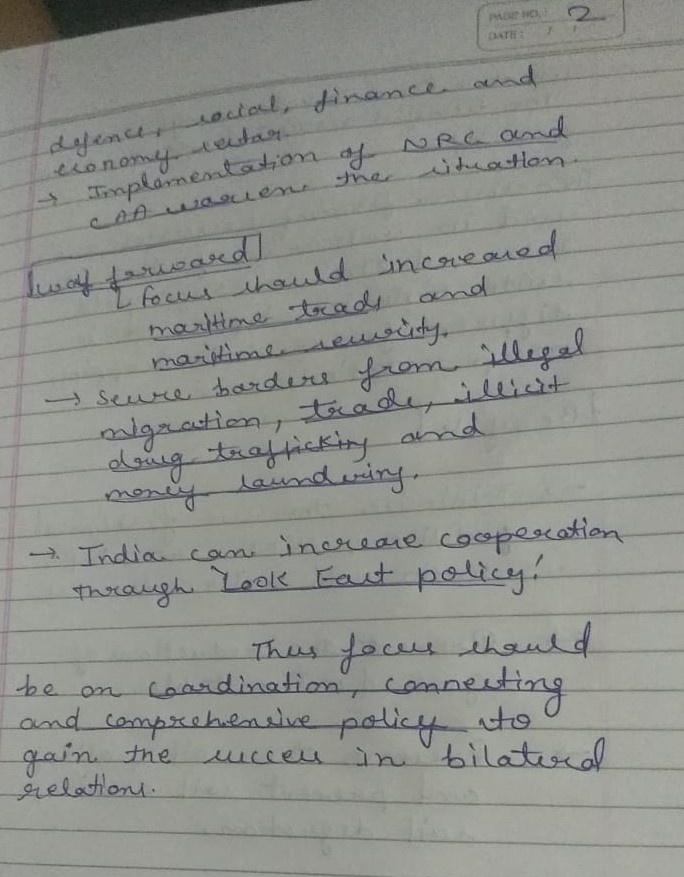 PAGE NO.: 2
DATE: / /
defence, social, finance and
economy sector
→ Implementation of NRC and
CAA worsen the situation.
Way forward
[ focus should increased
maritime trade and
maritime security.
→ Secure borders from illegal
migration, trade, illicit
drug trafficking and
money laundering.
→ India can increase cooperation
through 'Look East policy'
Thus focus should
be on coordination, connecting
and comprehensive policy to
gain the success in bilateral
relations.